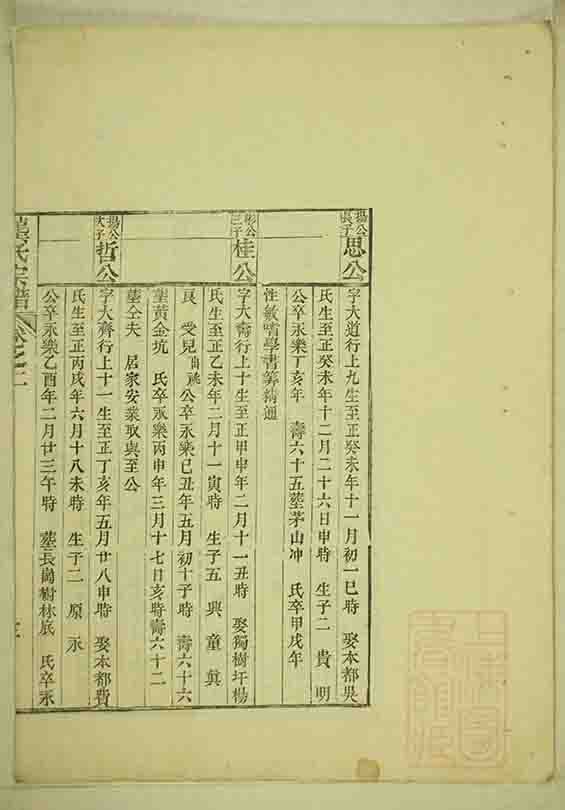 揚公長子
思公
字大道行上九生至正癸未年十一月初一巳時 娶本都吳
氏生至正癸未年十二月二十六日申時 生子二 貴 明
公卒永樂丁亥年 壽六十五塟茅山冲 氏卒甲戌年
性敏嗜學書筭精通
彰公三子
桂公
字大喬行上十生至正甲申年二月十一丑時 娶獨樹圩楊
氏生至正乙未年二月十一寅時 生子五 興 童 真
良 受兒 公卒永樂己丑年五月初十子時 壽六十六
塟黃金坑 氏卒永樂丙申年三月十七日亥時壽六十二
塟仝夫 居家安業取與至公
揚公次子
哲公
字大齊行上十一生至正丁亥年五月廿八申時 娶本都費
氏生至正丙戌年六月十八未時 生子二 原 永
公卒永樂乙酉年二月廿三午時 塟長崗樹林底 氏卒永
氏宗譜 卷之二
上 圖 書館